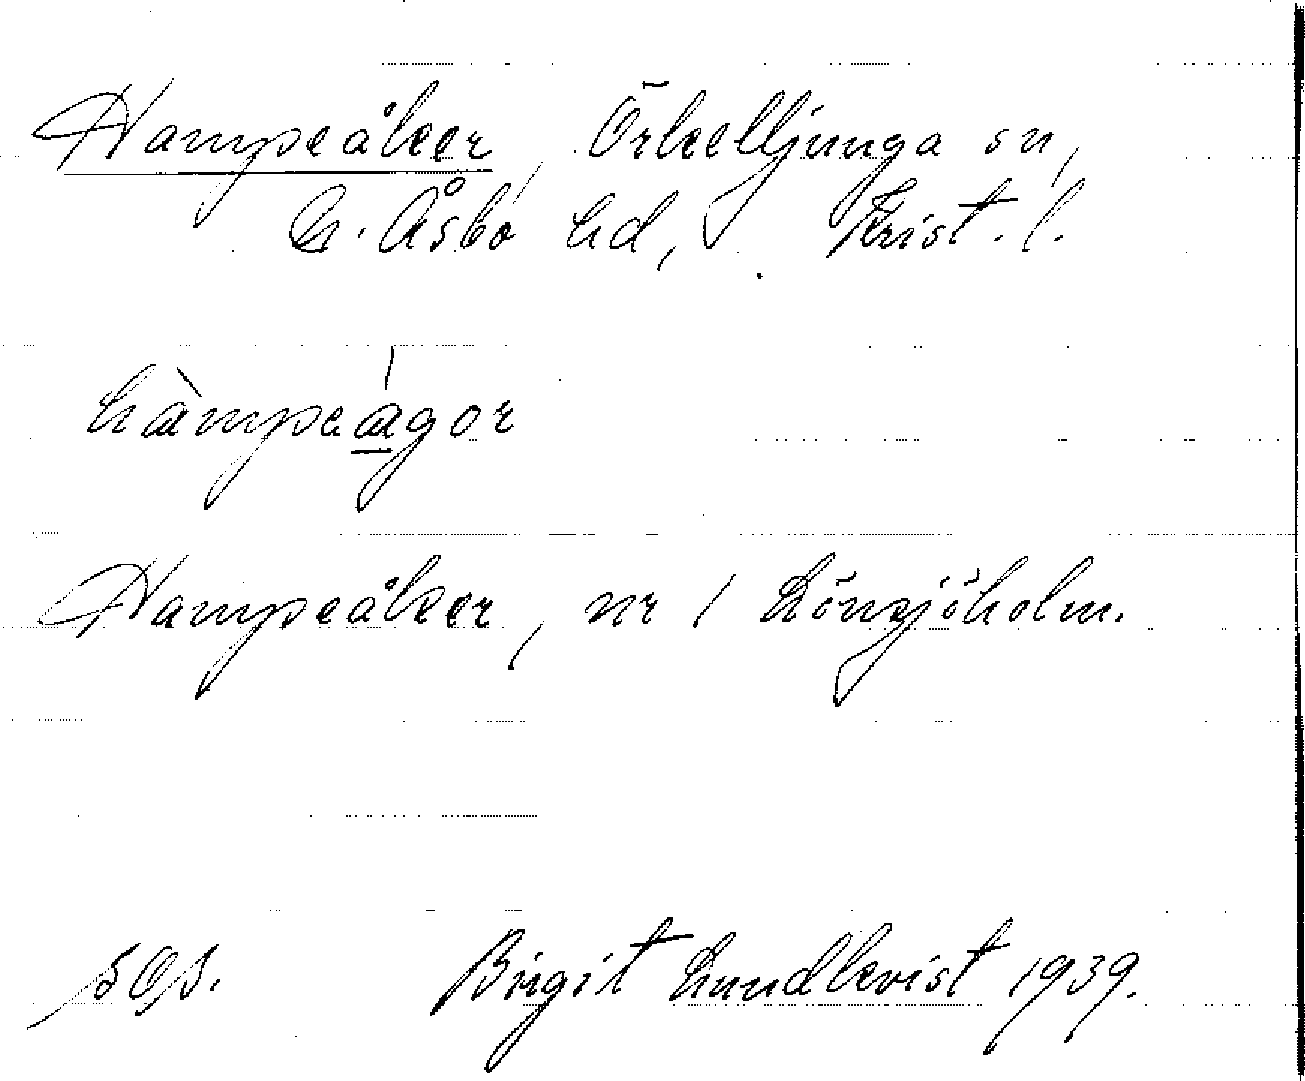 Hampeåker, Örkelljunga sn,
N. Åsbo hd, Krist. l.
hàmpeágor
Hampeåker, nr 1 Lönsjöholm.
Birgit Lundkvist 1939.